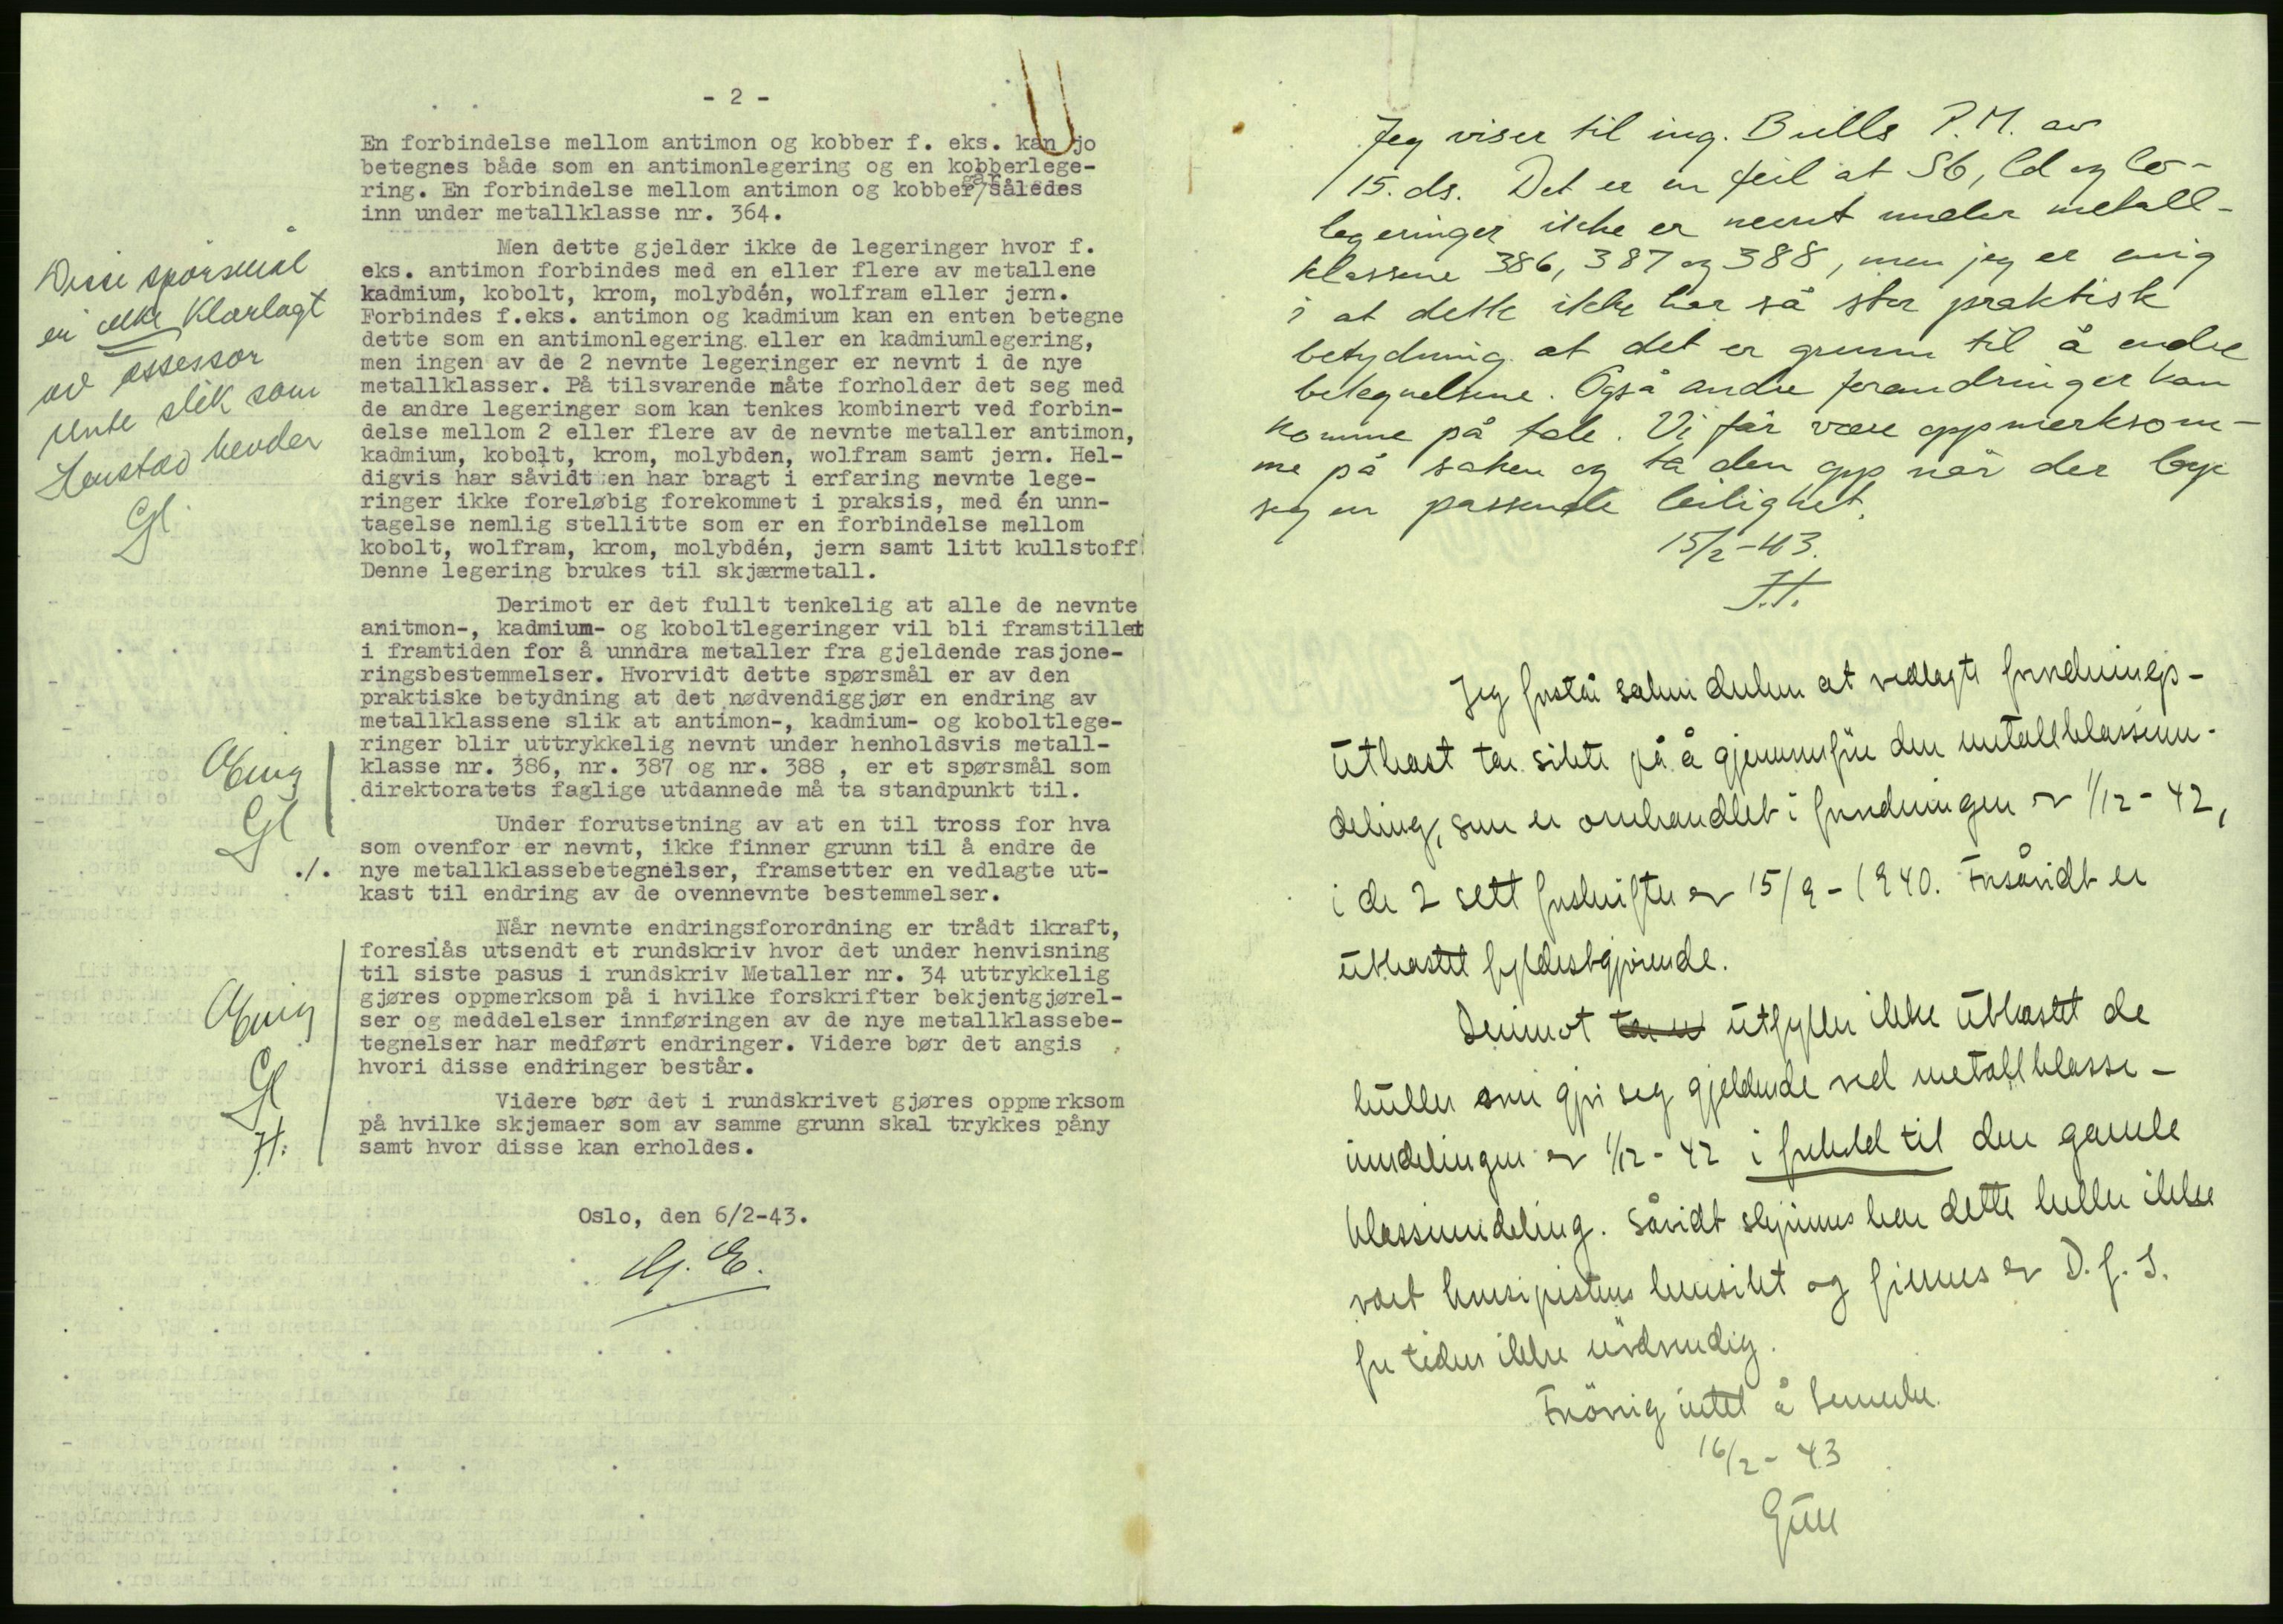 - 2 -
En forbindelse mellom antimon og kobber f. eks. kan jo
betegnes både som en antimonlegering og en kobberlege-
ring. En forbindelse mellom antimon og kobber/går således
inn under metallklasse nr. 364.
Men dette gjelder ikke de legeringer hvor f.
eks. antimon forbindes med en eller flere av metallene
kadmium, kobolt, krom, molybdén, wolfram eller jern.
Forbindes f.eks. antimon og kadmium kan en enten betegne
dette som en antimonlegering eller en kadmiumlegering,
men ingen av de 2 nevnte legeringer er nevnt i de nye
metallklasser. På tilsvarende måte forholder det seg med
de andre legeringer som kan tenkes kombinert ved forbin-
delse mellom 2 eller flere av de nevnte metaller antimon,
kadmium, kobolt, krom, molybden, wolfram samt jern. Hel-
digvis har såvidt en har bragt i erfaring nevnte lege-
ringer ikke foreløbig forekommet i praksis, med én unn-
tagelse nemlig stellitte som er en forbindelse mellom
kobolt, wolfram, krom, molybdén, jern samt litt kullstoff.
Denne legering brukes til skjærmetall.
Derimot er det fullt tenkelig at alle de nevnte
anitmon-, kadmium- og koboltlegeringer vil bli framstillet
i framtiden for å unndra metaller fra gjeldende rasjone-
ringsbestemmelser. Hvorvidt dette spørsmål er av den
praktiske betydning at det nødvendiggjør en endring av
metallklassene slik at antimon-, kadmium- og koboltlege-
ringer blir uttrykkelig nevnt under henholdsvis metall-
klasse nr. 386, nr. 387 og nr. 388 , er et spørsmål som
direktoratets faglige utdannede må ta standpunkt til.
Under forutsetning av at en til tross for hva
som ovenfor er nevnt, ikke finner grunn til å endre de
./. nye metallklassebetegnelser, framsetter en vedlagte ut-
kast til endring av de ovennevnte bestemmelser.
Når nevnte endringsforordning er trådt ikraft,
foreslås utsendt et rundskriv hvor det under henvisning
til siste pasus i rundskriv Metaller nr. 34 uttrykkelig
gjøres oppmerksom på i hvilke forskrifter bekjentgjørel-
ser og meddelelser innføringen av de nye metallklassebe-
tegnelser har medført endringer. Videre bør det angis
hvori disse endringer består.
Videre bør det i rundskrivet gjøres oppmerksom
på hvilke skjemaer som av samme grunn skal trykkes påny
samt hvor disse kan erholdes.
Oslo, den 6/2-43.
Disse spørsmål
er ikke klarlagt
av assessor
slik som
hevder
Gl
Enig
Gl
Enig
Gl
H.
Jeg viser til ing. Bulls P.M. av
15. ds. Det er en feil at Sb, Cd og Co-
legeringer ikke er nevnt under metall-
klassene 386, 387 og 388, men jeg er enig
i at dette ikke har så stor praktisk
betydning at det er grunn til å endre
betegnelsene. Også andre forandringer kan
komme på tale. Vi får være oppmerksom-
me på saken og ta den opp når der byr
seg en passende leilighet.
15/2-43.
Jeg forstår saken derhen at vedlagte forordnings-
utkast tar sikte på å gjennomføre den metallklasseinn-
deling, som er omhandlet i forordningen av 1/12-42,
i de 2 sett forskrifter av 15/9-1940. Forsåvidt er
utkastet fyldestgjørende.
Derimot utfyller ikke utkastet de
huller som gjør seg gjeldende ved metallklasse-
inndelingen av 1/12-42 i forhold til den gamle
klasseinndeling. Såvidt skjønnes har dette heller ikke
vært hensikt og finnes av D.f.I.
for tiden ikke nødvendig.
Forøvrig intet å bemerke.
16/2-43